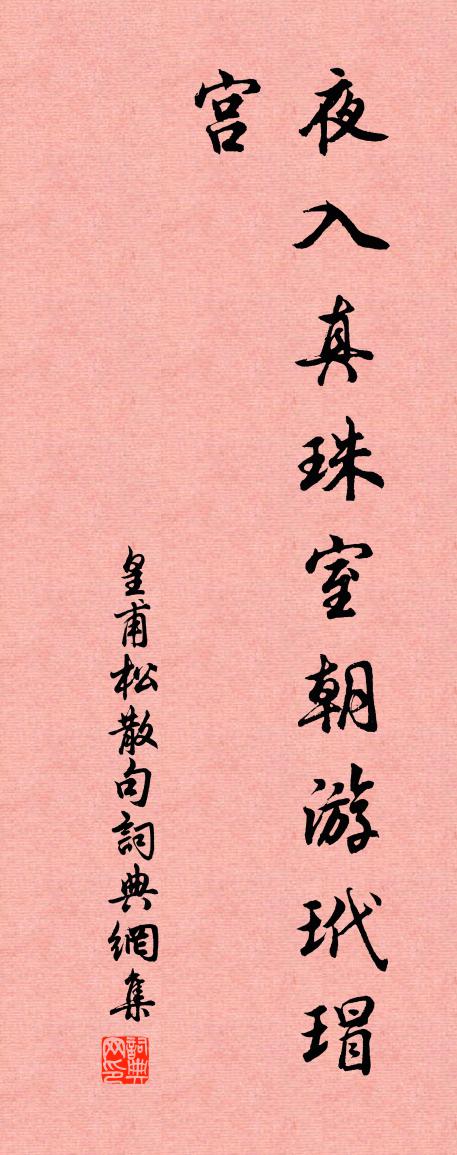 夜入真珠室朝游玳瑁
宫
皇甫松散句詞典網集
詞典网印